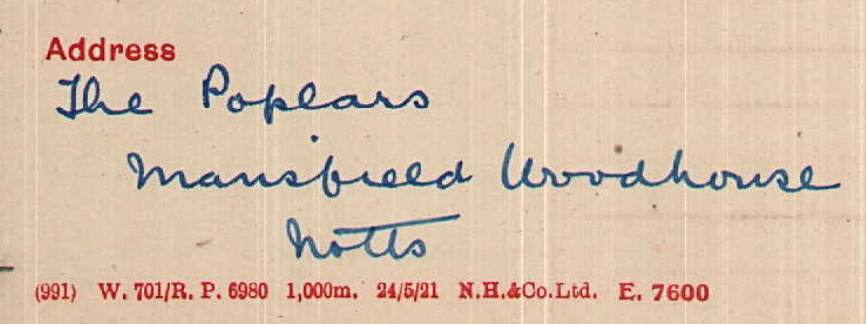 Address
The Poplars
Mansfield Woodhouse
Notts
(991) W. 701/R. P. 6980 1,000m. 24/5/21 N.H.&Co.Ltd. E. 7600